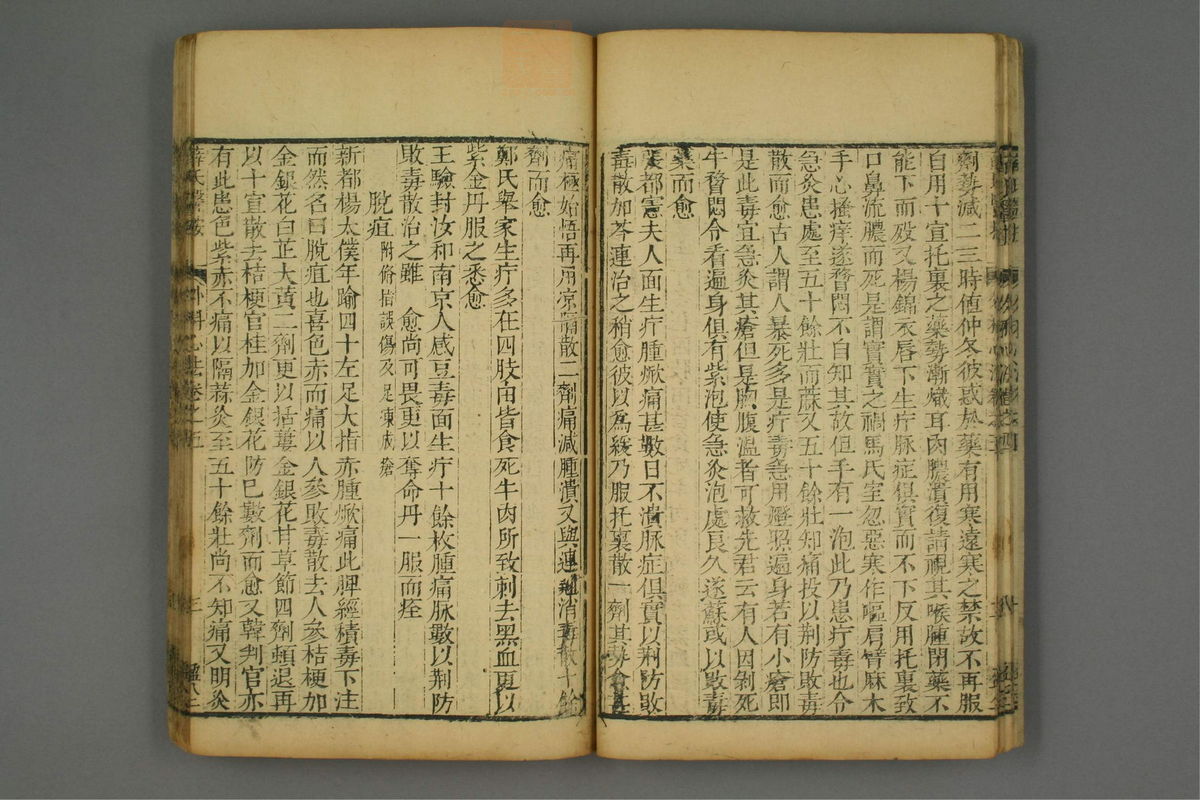 劑勢減二三時值仲冬彼惑於藥有用寒遠寒之禁故不再服
自用十宣托裏之藥勢漸熾耳內膿潰復請視其喉腫閉藥不
能下而歿又楊錦衣唇下生疔脉症俱實而不下反用托裏致
口鼻流膿而死是謂實實之禍馬氏室忽惡寒作嘔肩臂麻木
手心搔痒遂瞀悶不自知其故但手有一泡此乃患疔毒也令
急灸患處至五十餘壯而蘇又五十餘壯知痛投以荆防敗毒
散而愈古人謂人暴死多是疔毒急用燈照遍身若有小瘡即
是此毒宜急灸其瘡但是胸腹溫者可救先君云有人因剝死
牛瞀悶令看遍身俱有紫泡使急灸泡處良久遂蘇或以敗毒
藥而愈
都憲夫人面生疔腫焮痛甚數日不潰脉症俱實以荆防敗
毒散加芩連治之稍愈彼以為緩乃服托裏散一劑其勢
痛極始悟再用凉膈散二劑痛減腫潰又與連翹消毒散十餘
劑而愈
鄭氏舉家生疔多在四肢由皆食死牛肉所致刺去黑血更以
紫金丹服之悉愈
王驗封汝和南京人感豆毒面生疔十餘枚腫痛脉數以荆防
敗毒散治之雖愈尚可畏更以奪命丹一服而痊
脫疽 附脩指誤傷及足凍成瘡
新都楊太僕年踰四十左足大指赤腫焮痛此脾經積毒下注
而然名曰脫疽也喜色赤而痛以人參敗毒散去人參桔梗加
金銀花白芷大黃二劑更以括蔞金銀花甘草節四劑頓退再
以十宣散去桔梗官桂加金銀花防已數劑而愈又韓判官亦
有此患色紫赤不痛以隔蒜灸至五十餘壯尚不知痛又明灸
薛氏醫按 外科心法卷之五 三